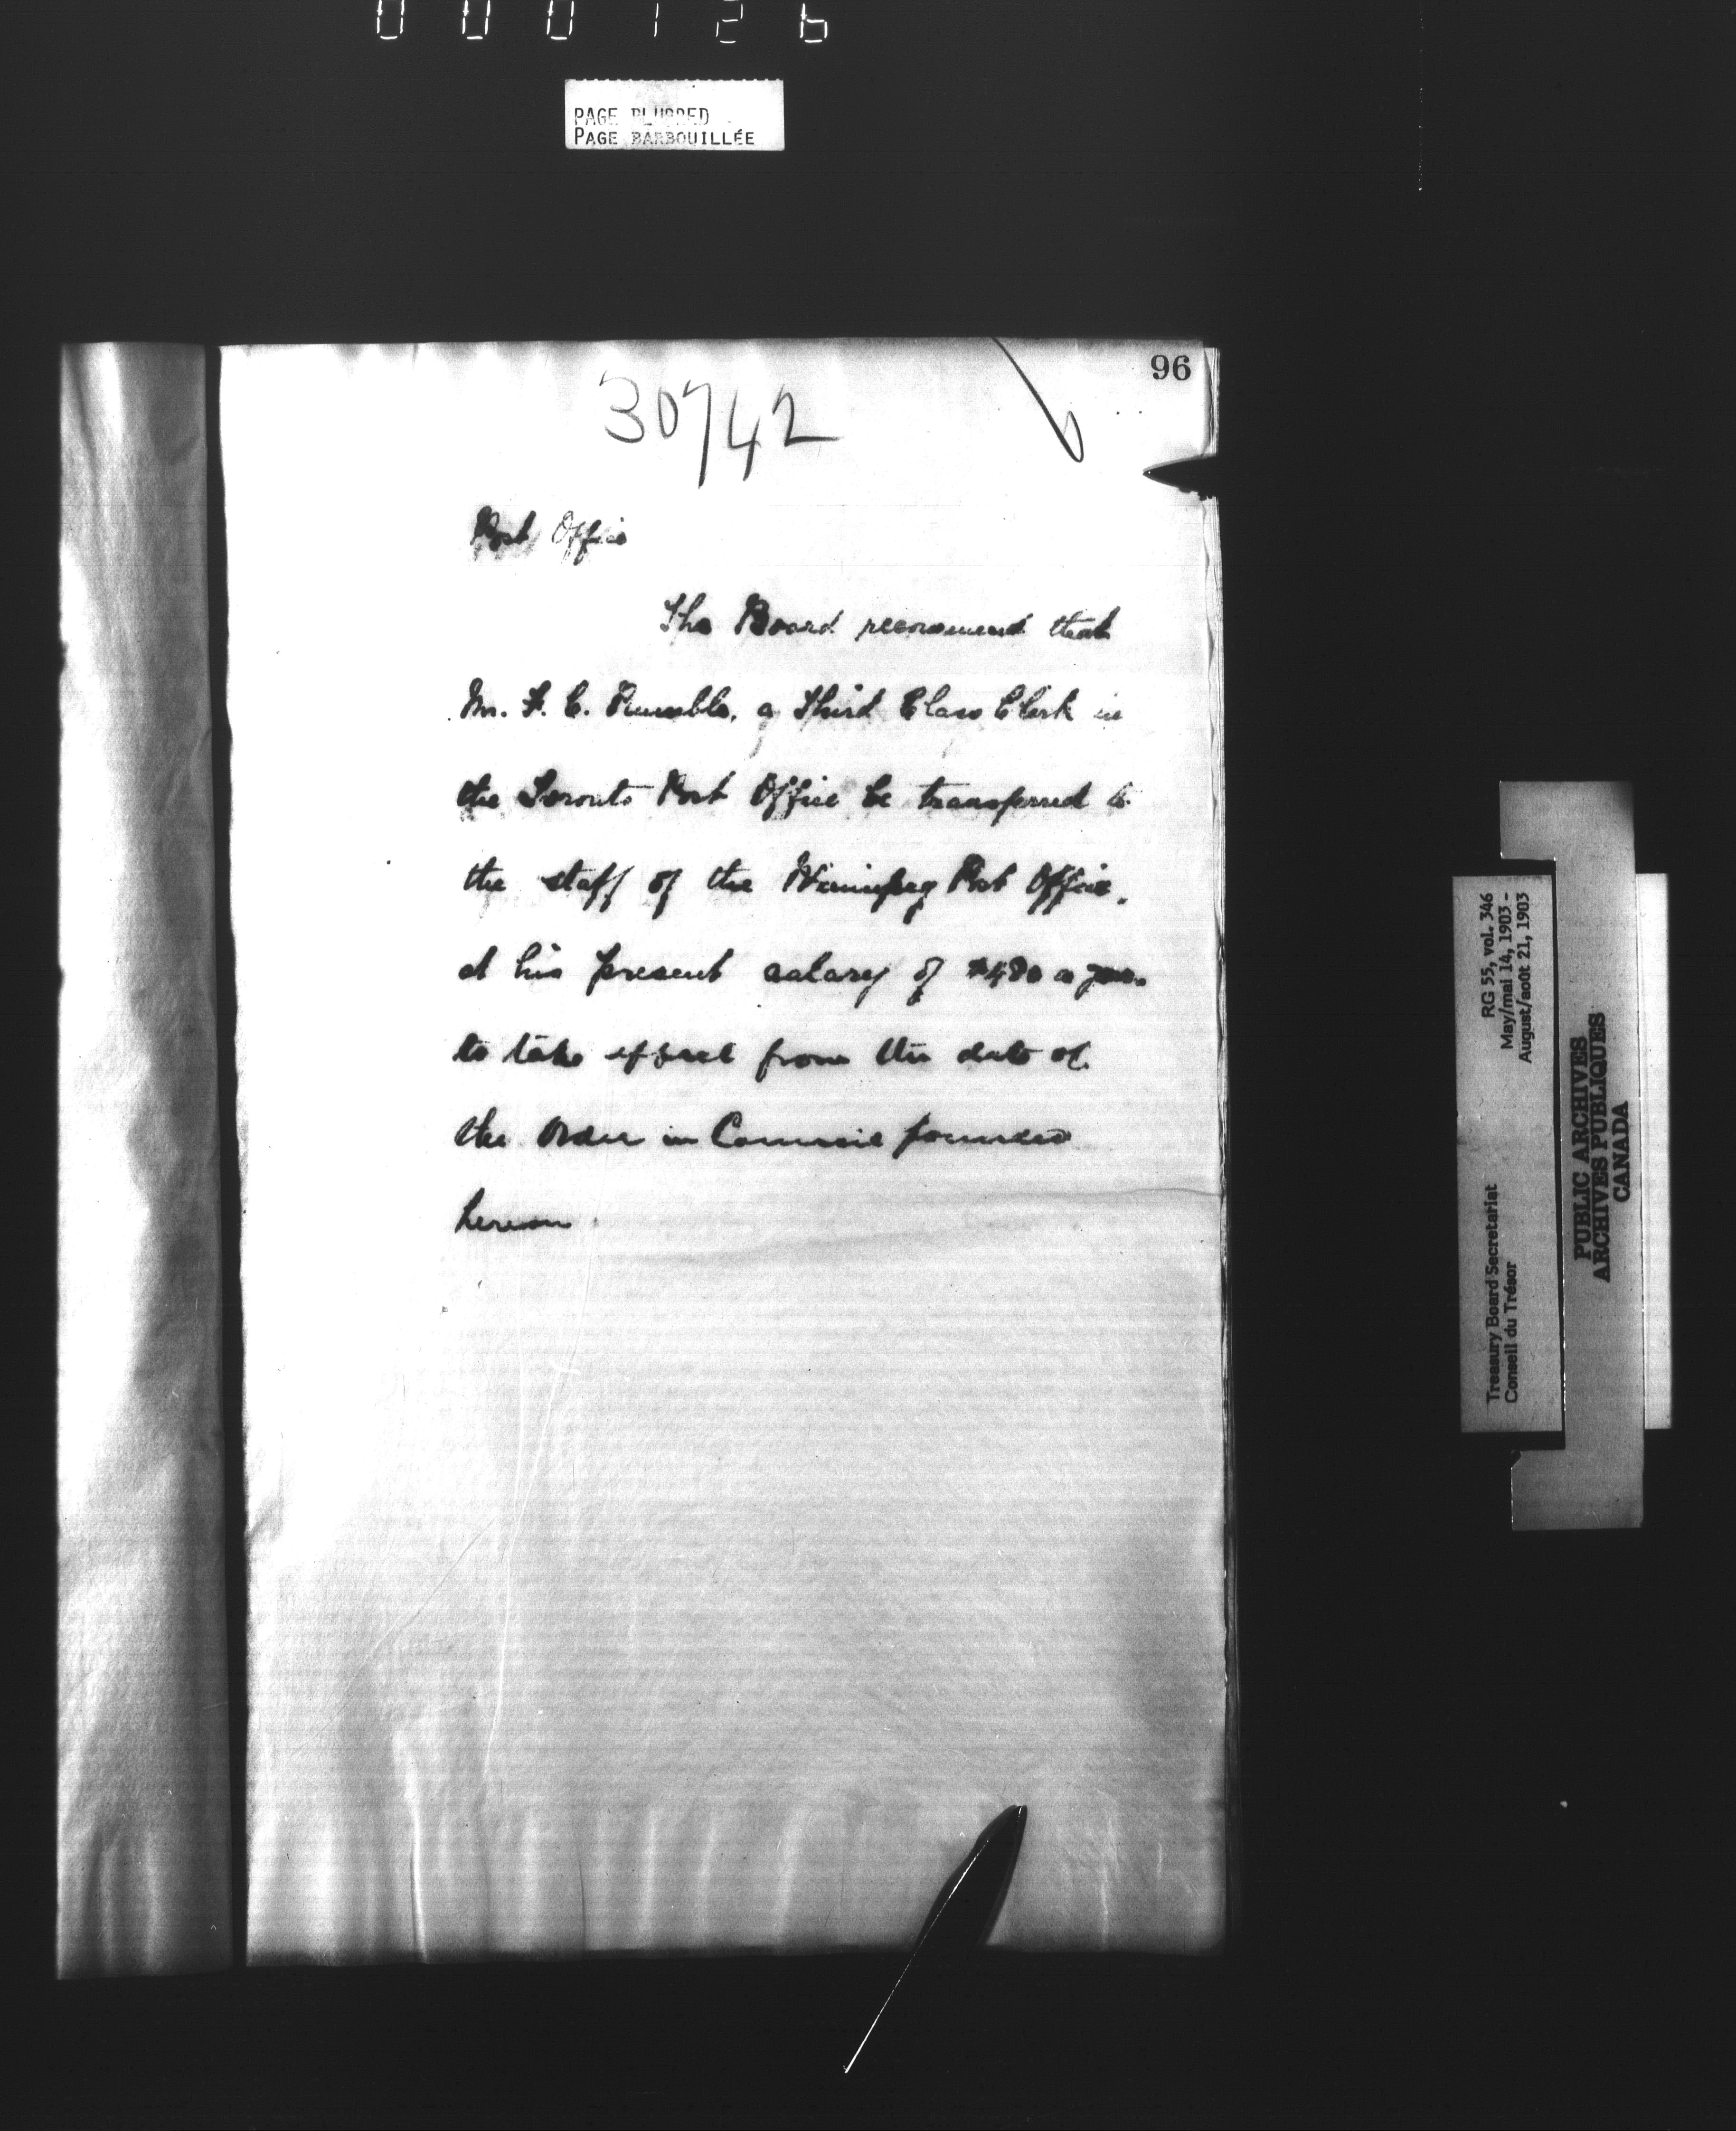 000126
PAGE BLURRED
PAGE BARBOUILLÉE
96
30742
Post Office
The Board recommend that
Mr. F. C. Rumble, a Third Class Clerk in
the Toronto Post Office be transferred to
the staff of the Winnipeg Post Office,
at his present salary of $480 a year
to take effect from the date of
the Order in Council founded
hereon
RG 55, vol. 346
May/mai 14, 1903 -
August/août 21, 1903
Treasury Board Secretariat
Conseil du Trésor
PUBLIC ARCHIVES
ARCHIVES PUBLIQUES
CANADA